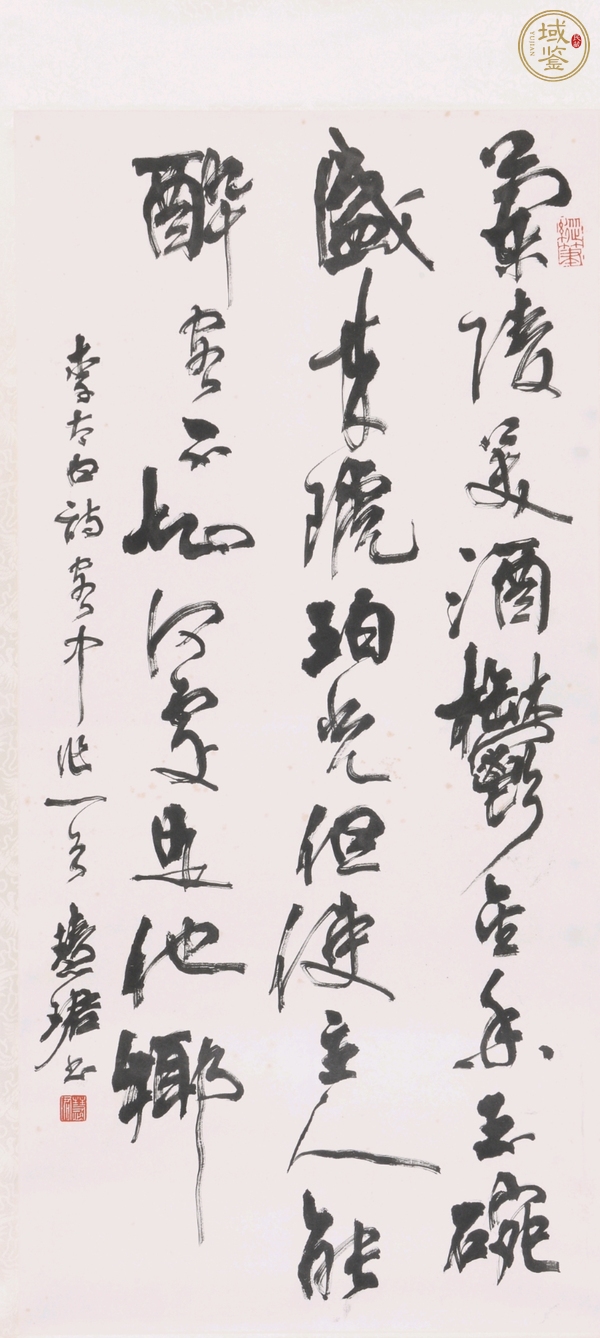 蘭陵美酒鬱金香玉碗
盛來琥珀光但使主人能
醉客不知何處是他鄉
李太白詩客中作一首 慧珺書
域鉴
YUJIAN